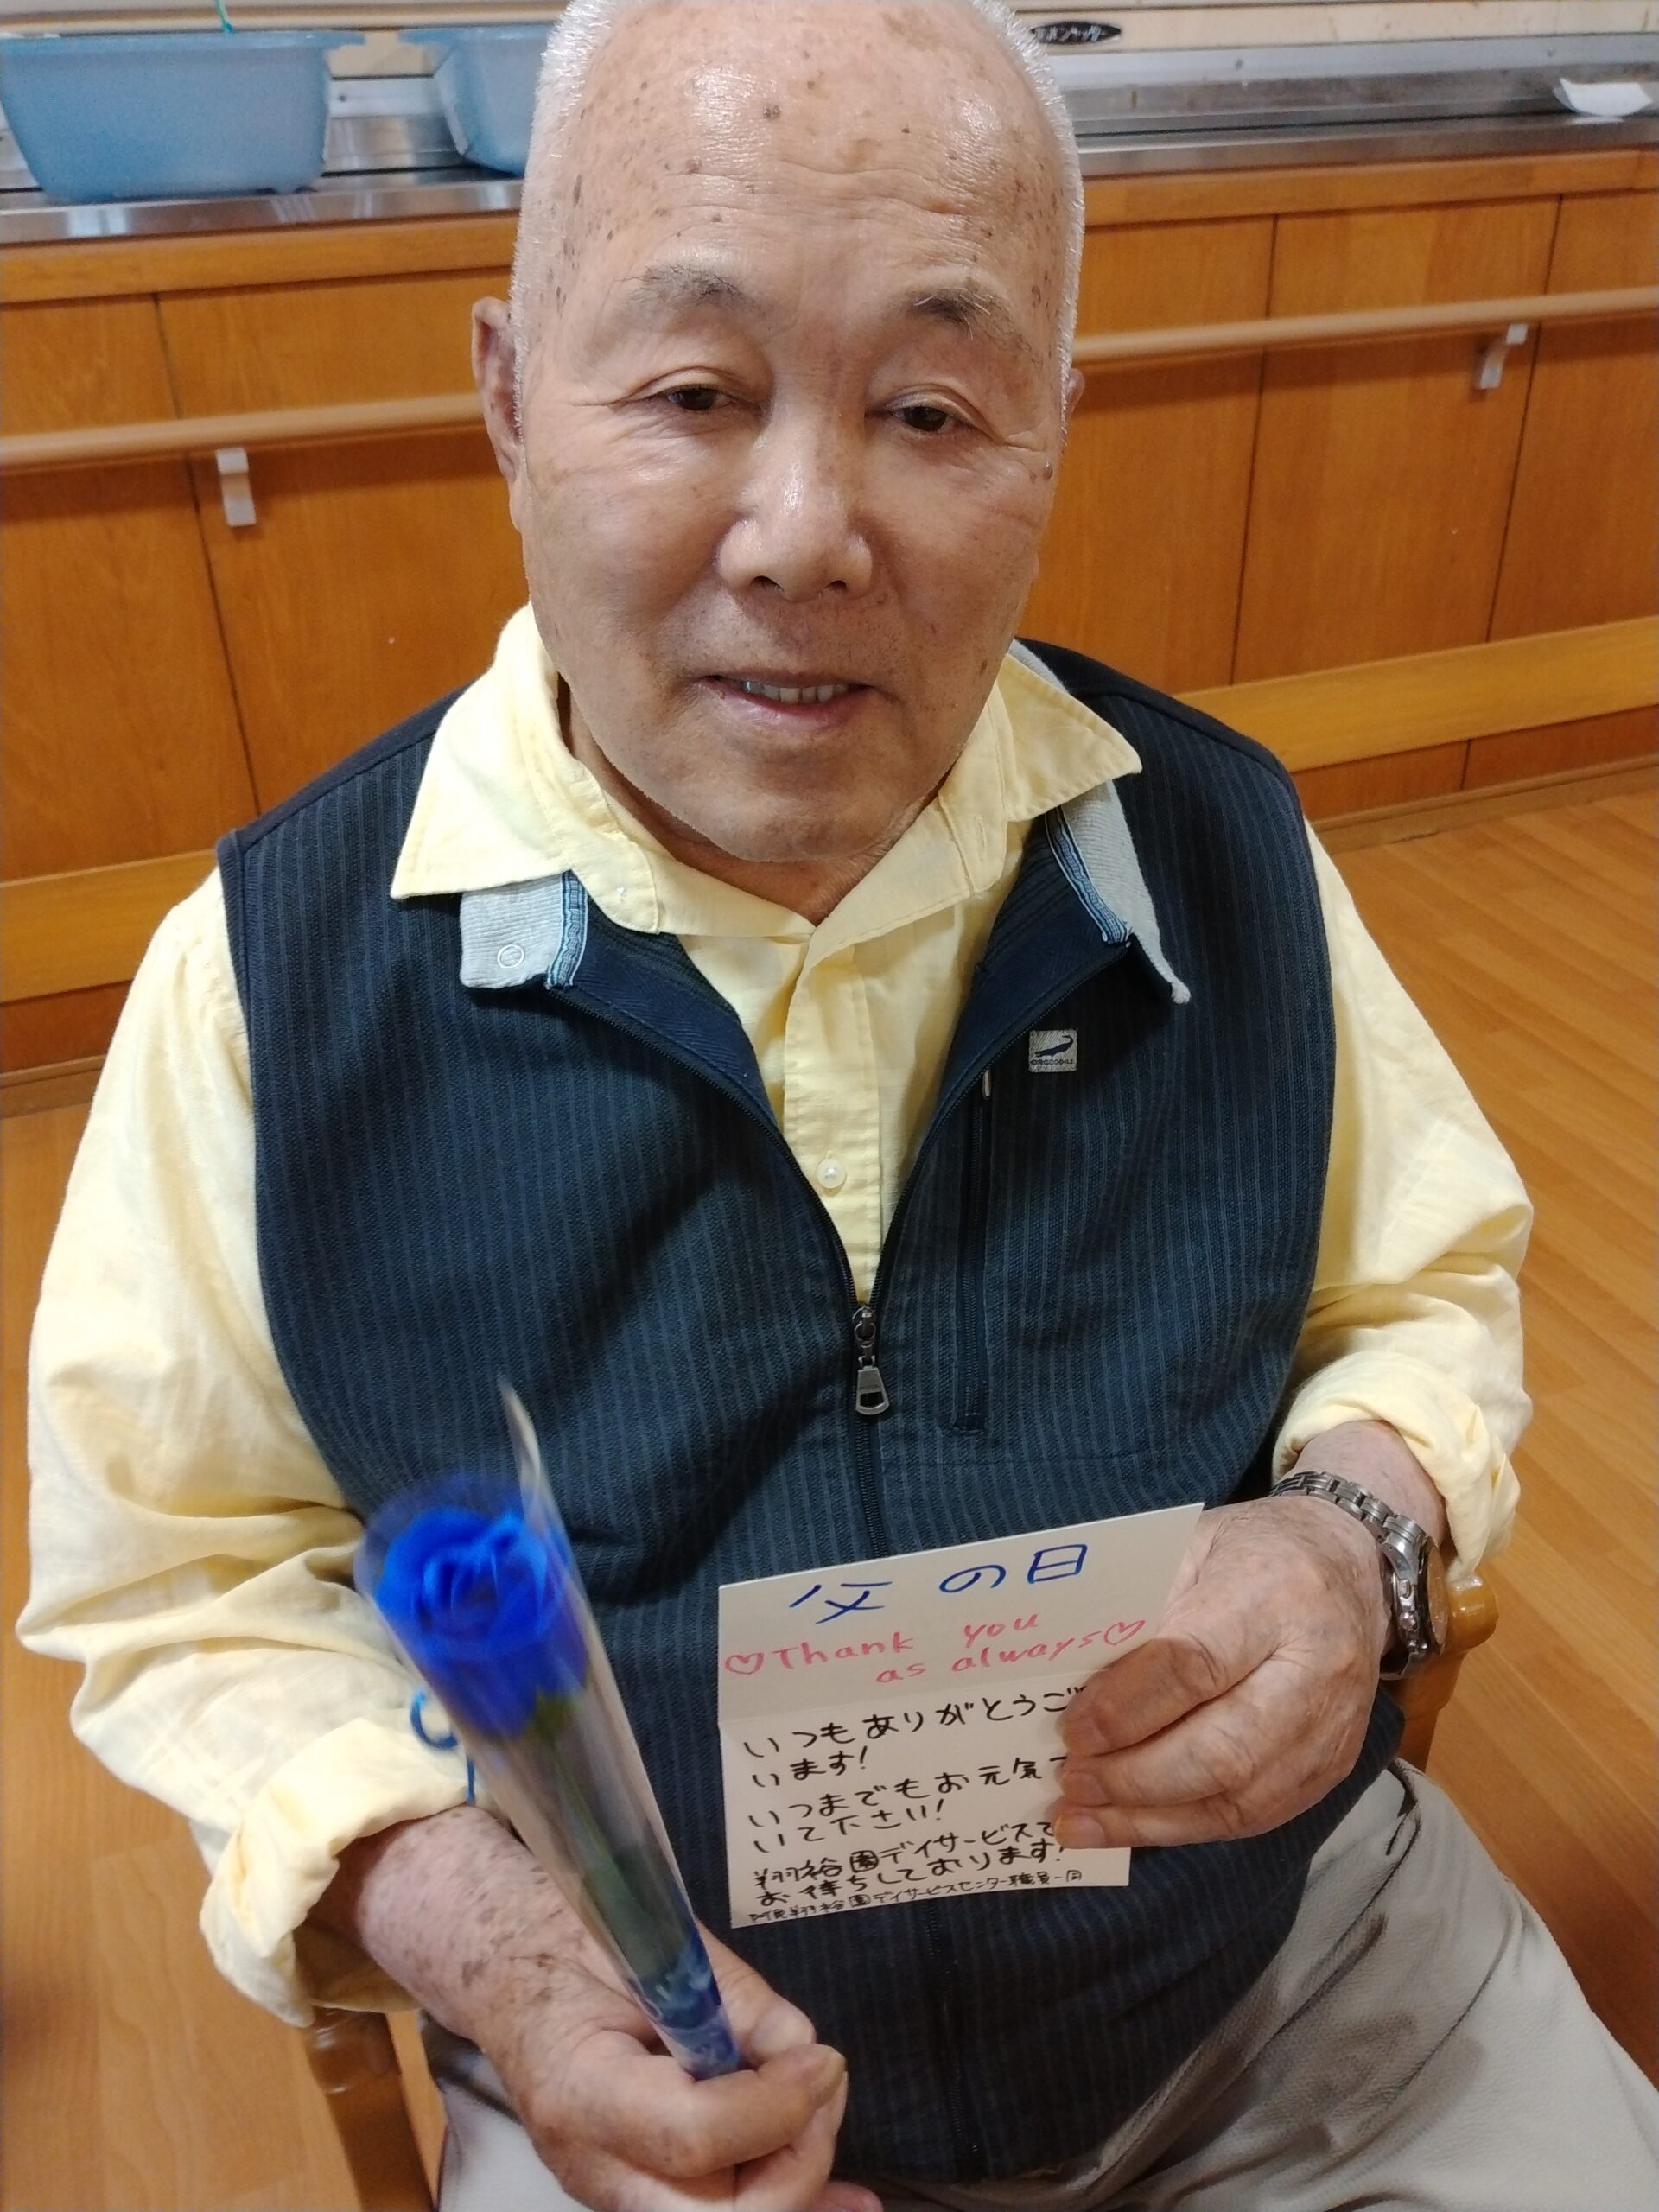 父の日
♡Thank you
as always♡
いつもありがとうご
います!
いつまでもお元気で
いて下さい!
翔裕園デイサービスで
お待ちしております!
翔裕園デイサービスセンター職員一同
CROCODILE